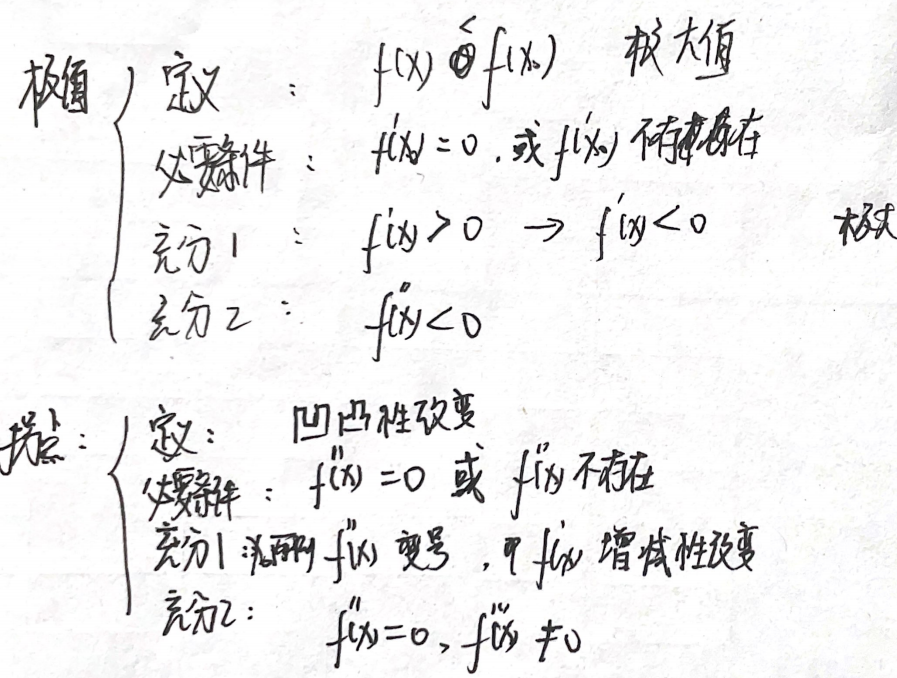 极值 定义 : f(x) < f(x₀) 极大值
必要条件 : f'(x₀) = 0 . 或 f'(x₀) 不存在
充分1 : f'(x) > 0 → f'(x) < 0 极大
充分2 : f''(x) < 0
拐点 : 定义 : 凹凸性改变
必要条件 : f''(x) = 0 或 f''(x) 不存在
充分1 : 两侧 f''(x) 变号 , f'(x) 增减性改变
充分2 : f''(x) = 0 、 f'''(x) ≠ 0